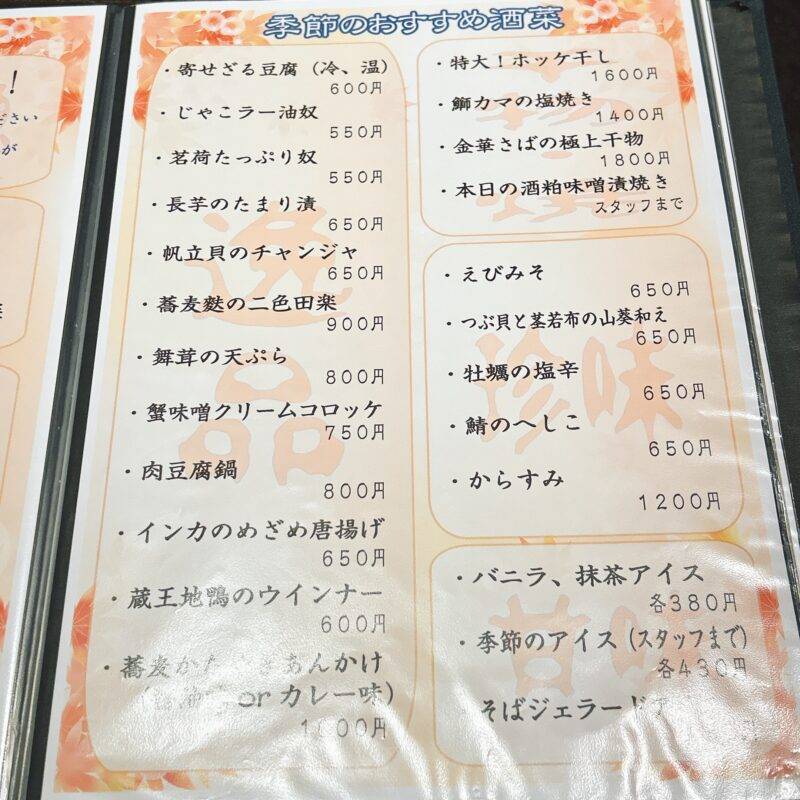 季節のおすすめ酒菜
！
ださい
が
・寄せざる豆腐（冷、温）
600円
・じゃこラー油奴
550円
・茗荷たっぷり奴
550円
・長芋のたまり漬
650円
・帆立貝のチャンジャ
650円
・蕎麦麩の二色田楽
900円
・舞茸の天ぷら
800円
・蟹味噌クリームコロッケ
750円
・肉豆腐鍋
800円
・インカのめざめ唐揚げ
650円
・蔵王地鴨のウインナー
600円
・蕎麦か
あんかけ
油
or カレー味）
円
逸品
・特大！ホッケ干し
1600円
・鰤カマの塩焼き
1400円
・金華さばの極上干物
1800円
・本日の酒粕味噌漬焼き
スタッフまで
・えびみそ
650円
・つぶ貝と茎若布の山葵和え
650円
・牡蠣の塩辛
650円
・鯖のへしこ
650円
・からすみ
1200円
珍味
・バニラ、抹茶アイス
各380円
・季節のアイス（スタッフまで）
各430円
そばジェラード
甘味